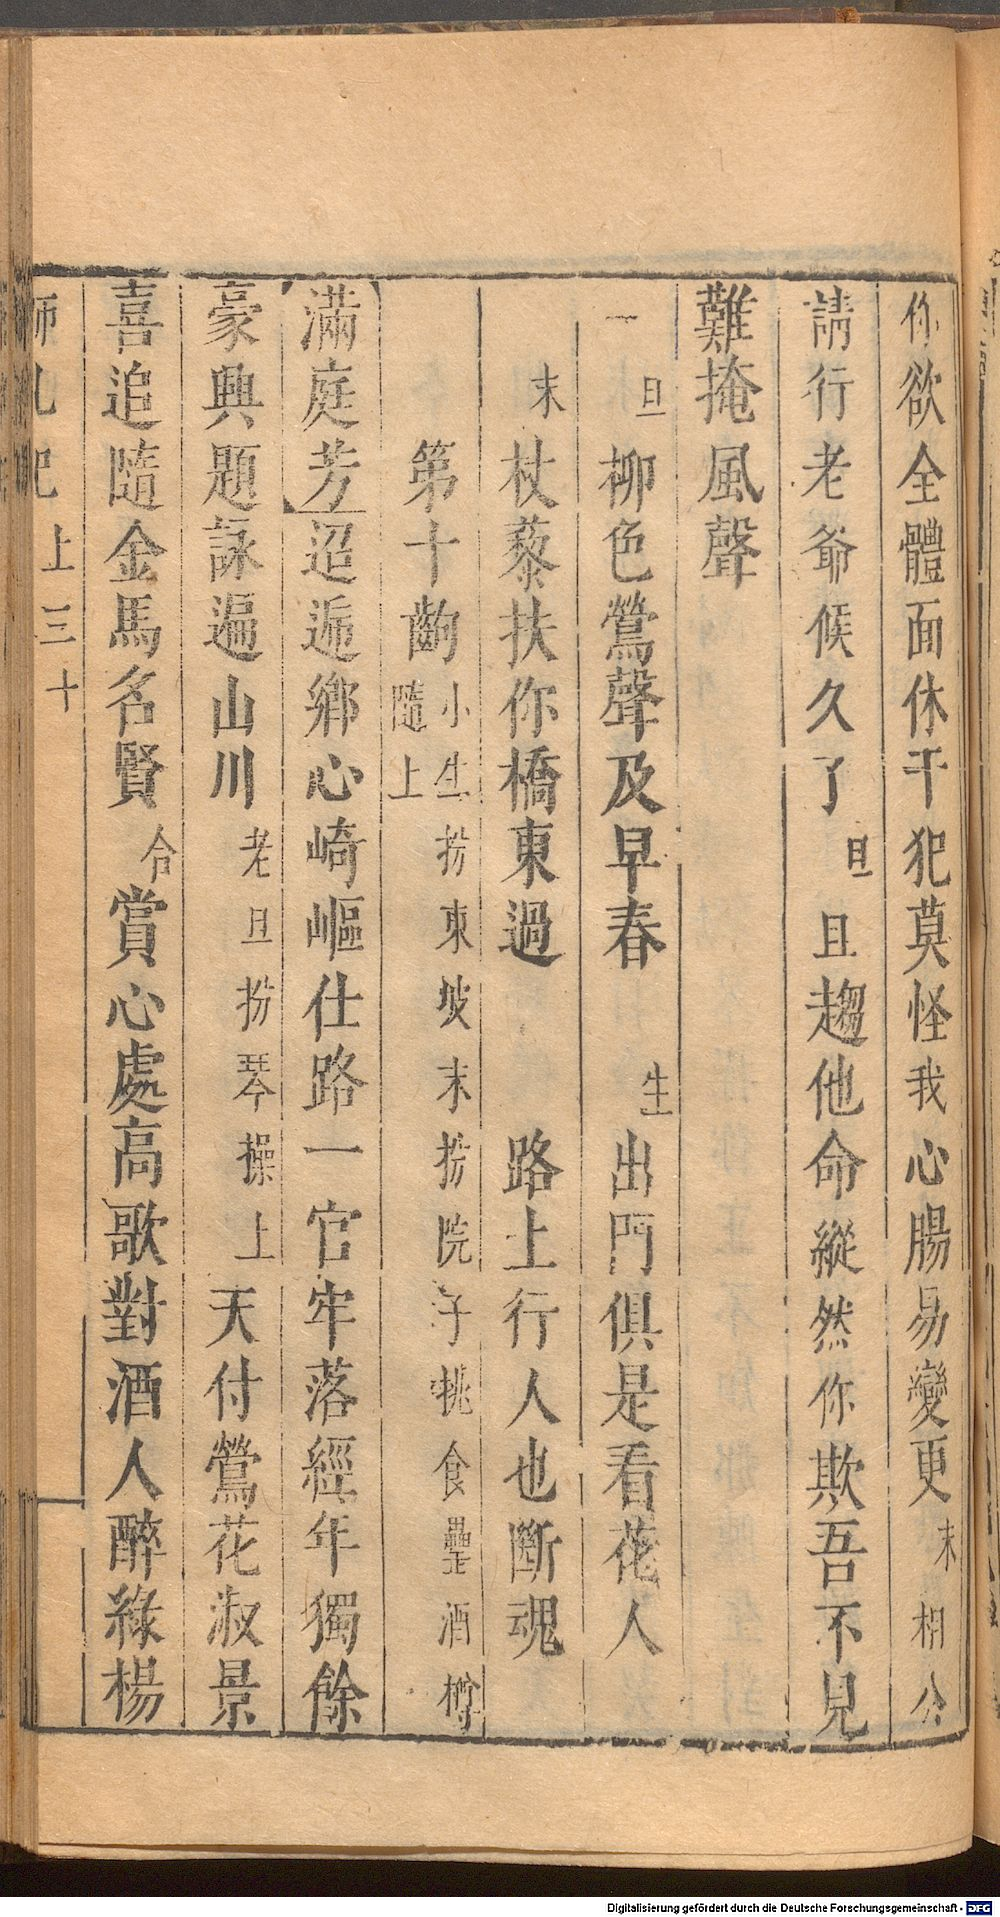 你欲全體面休干犯莫怪我心腸易變更末相公
請行老爺候久了旦且趨他命縱然你欺吾不見
難掩風聲
一旦柳色鶯聲及早春生出門俱是看花人
末杖藜扶你橋東過路上行人也斷魂
第十齣小生扮東坡末扮院子挑食罍酒樽隨上
滿庭芳迢遞鄉心崎嶇仕路一官牢落經年獨餘
豪興題詠遍山川老旦扮琴操上天付鶯花淑景
喜追隨金馬名賢合賞心處高歌對酒人醉綠楊
上三十
Digitalisierung gefördert durch die Deutsche Forschungsgemeinschaft - DFG